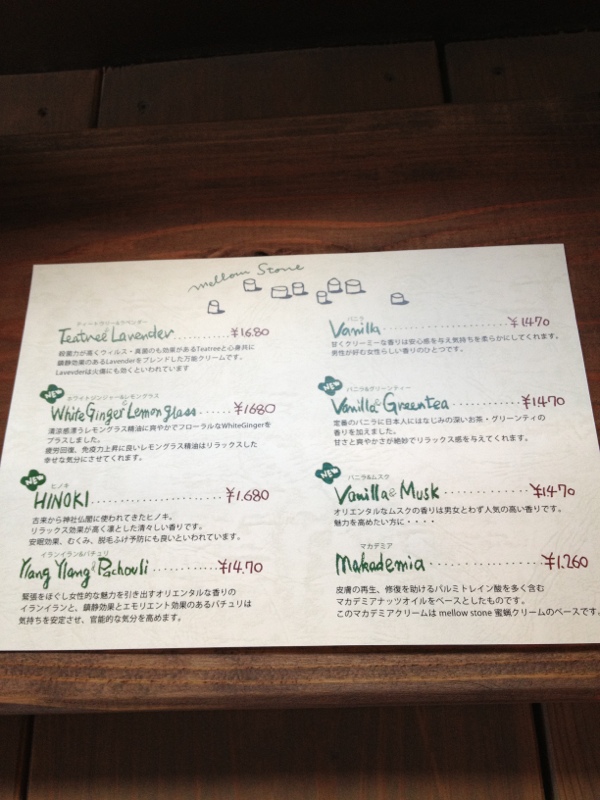 mellow Stone
ティートゥリー&ラベンダー
Teatree Lavender ¥16.80
殺菌力が高くウィルス・真菌のも効果があるTeatreeと心身共に
鎮静効果のあるLavenderをブレンドした万能クリームです。
Lavevderは火傷にも効くといわれています
NEW
ホワイトジンジャー&レモングラス
White Ginger & Lemon glass ...... ¥1680
清涼感漂うレモングラス精油に爽やかでフローラルなWhiteGingerを
プラスしました。
疲労回復、免疫力上昇に良いレモングラス精油はリラックスした
幸せな気分にさせてくれます。
NEW
ヒノキ
HINOKI ¥1.680
古来から神社仏閣に使われてきたヒノキ。
リラックス効果が高く凛とした清々しい香りです。
安眠効果、むくみ、脱毛ふけ予防にも良いといわれています。
イランイラン&パチュリ
Ylang Ylang & Pachouli ¥14.70
緊張をほぐし女性的な魅力を引き出すオリエンタルな香りの
イランイランと、鎮静効果とエモリエント効果のあるパチュリは
気持ちを安定させ、官能的な気分を高めます。
バニラ
Vanilla ¥1470
甘くクリーミーな香りは安心感を与え気持ちを柔らかにしてくれます。
男性が好む女性らしい香りのひとつです。
NEW
バニラ&グリーンティー
Vanilla & Greentea ¥1470
定番のバニラに日本人にはなじみの深いお茶・グリーンティの
香りを加えました。
甘さと爽やかさが絶妙でリラックス感を与えてくれます。
NEW
バニラ&ムスク
Vanilla & Musk ¥1470
オリエンタルなムスクの香りは男女とわず人気の高い香りです。
魅力を高めたい方に・・・・
マカデミア
Makademia ¥1.260
皮膚の再生、修復を助けるパルミトレイン酸を多く含む
マカデミアナッツオイルをベースとしたものです。
このマカデミアクリームは mellow stone 蜜蝋クリームのベースです。